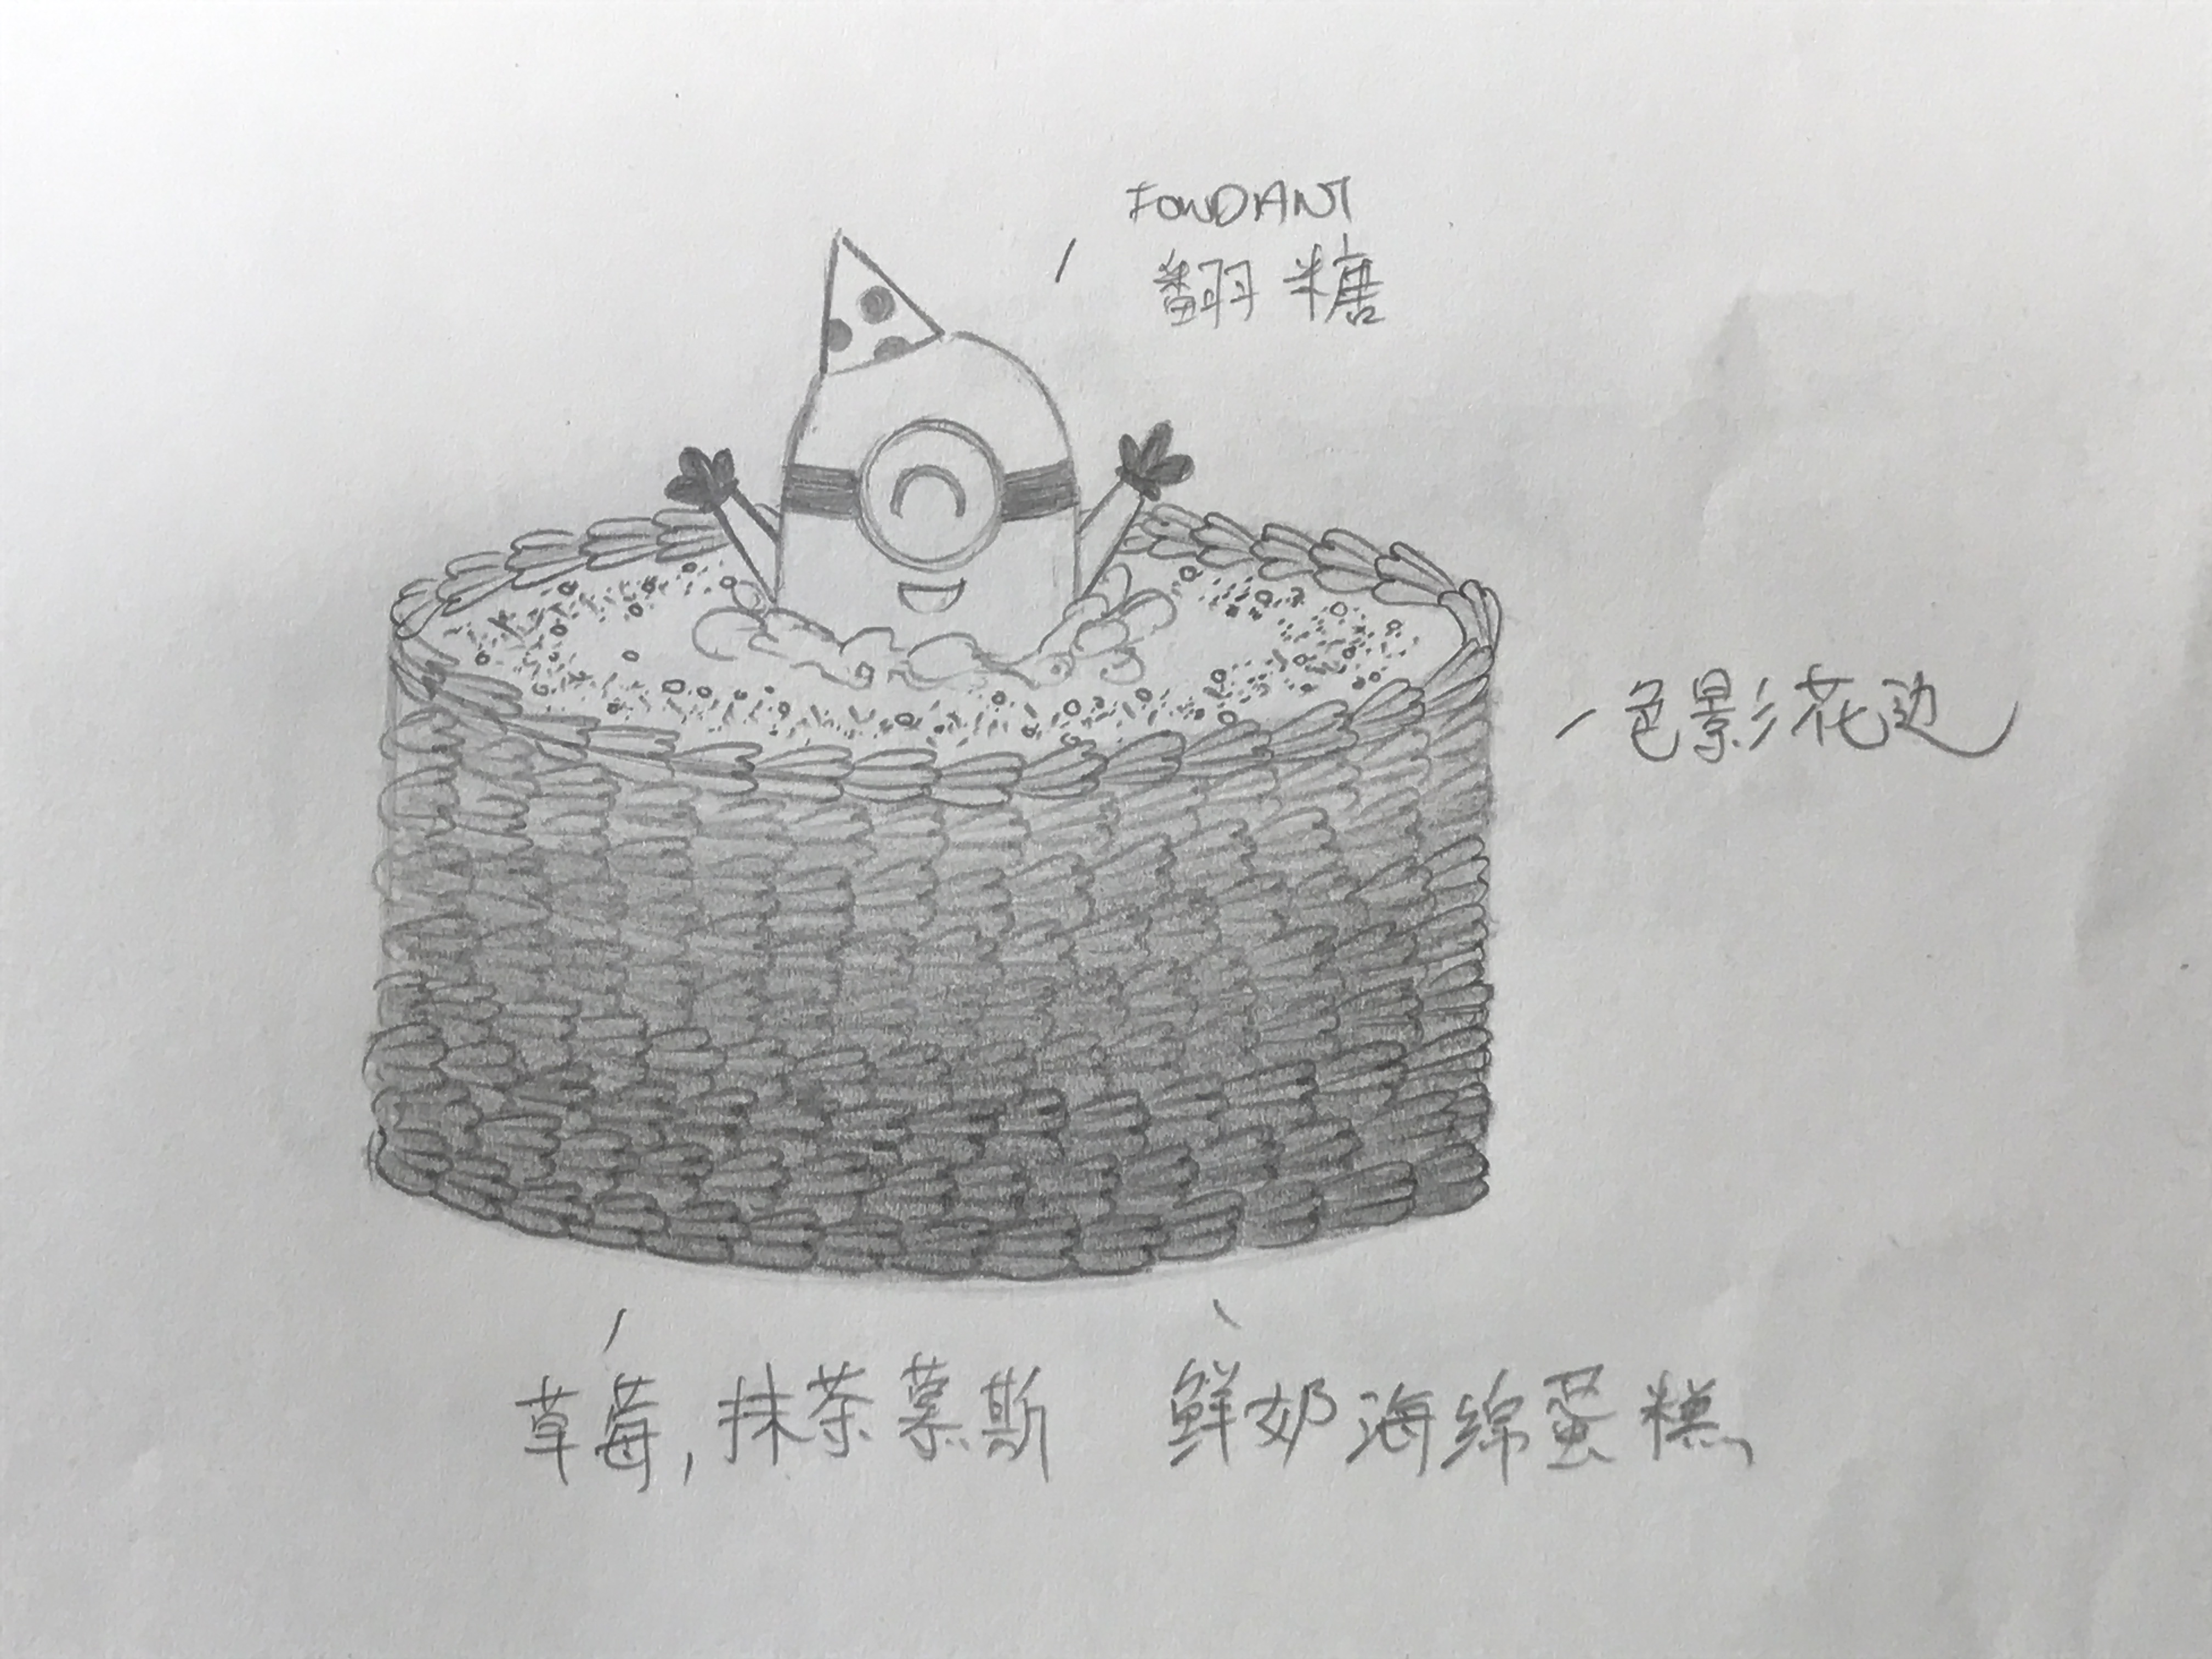 FONDANT
翻糖
色影花边
草莓,抹茶慕斯
鲜奶海绵蛋糕